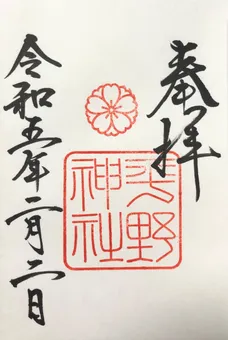 奉拝
平野神社
令和五年二月二日